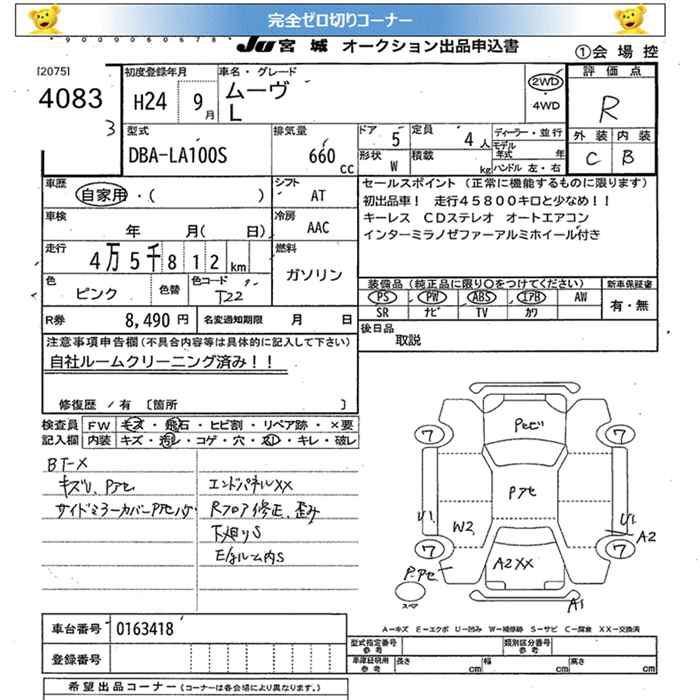 完全ゼロ切りコーナー
9 0 0 9 0 6 0 6 7 8
JU 宮 城 オークション出品申込書
①会 場 控
[2075]
4083
3
初度登録年月
H24 9月
車名・グレード
ムーヴ
L
2WD
4WD
評 価 点
R
外 装 内 装
C B
型式
DBA-LA100S
排気量
660 cc
ドア 5
定員 4人
ディーラー・並行
モデル年式 年
形状 W
積載 kg
ハンドル 左・右
車歴
自家用・( )
シフト
AT
セールスポイント (正常に機能するものに限ります)
初出品車! 走行45800キロと少なめ!!
キーレス CDステレオ オートエアコン
インターミラノゼファーアルミホイール付き
車検
年 月( 日)
冷房
AAC
走行
4万5千812km
燃料
ガソリン
色
ピンク
色替
色コード
T22
装備品 (純正品に限り○をつけてください)
新車保証書
PS PW ABS エアB AW
SR ナビ TV カワ
有・無
R券 8,490 円
名変通知期限 月 日
後日品
取説
注意事項申告欄 (不具合内容等は具体的に記入して下さい)
自社ルームクリーニング済み!!
修復歴 / 有 〔箇所 〕
検査員 FW キズ・飛石・ヒビ割・リペア跡・×要
記入欄 内装 キズ・汚レ・コゲ・穴・スレ・キレ・破レ
BT-X
キズU、Pアセ
サイドミラーカバーPアセハゲ
エンドパネルXX
Rフロア修正、歪み
下廻りS
E/gルーム内S
Pセド
7 7
Pアセ
U1
W2
U1
A2
7 7
A2XX
P.アセ
スペア
A1
A－キズ E－エクボ U－凹み W－補修跡 S－サビ C－腐食 XX－交換済
車台番号 0163418
登録番号
型式指定番号 参考
類別区分番号 参考
車庫証明用 参考 長さ cm 幅 cm 高さ cm
希望出品コーナー (コーナーは各会場により異なります。)